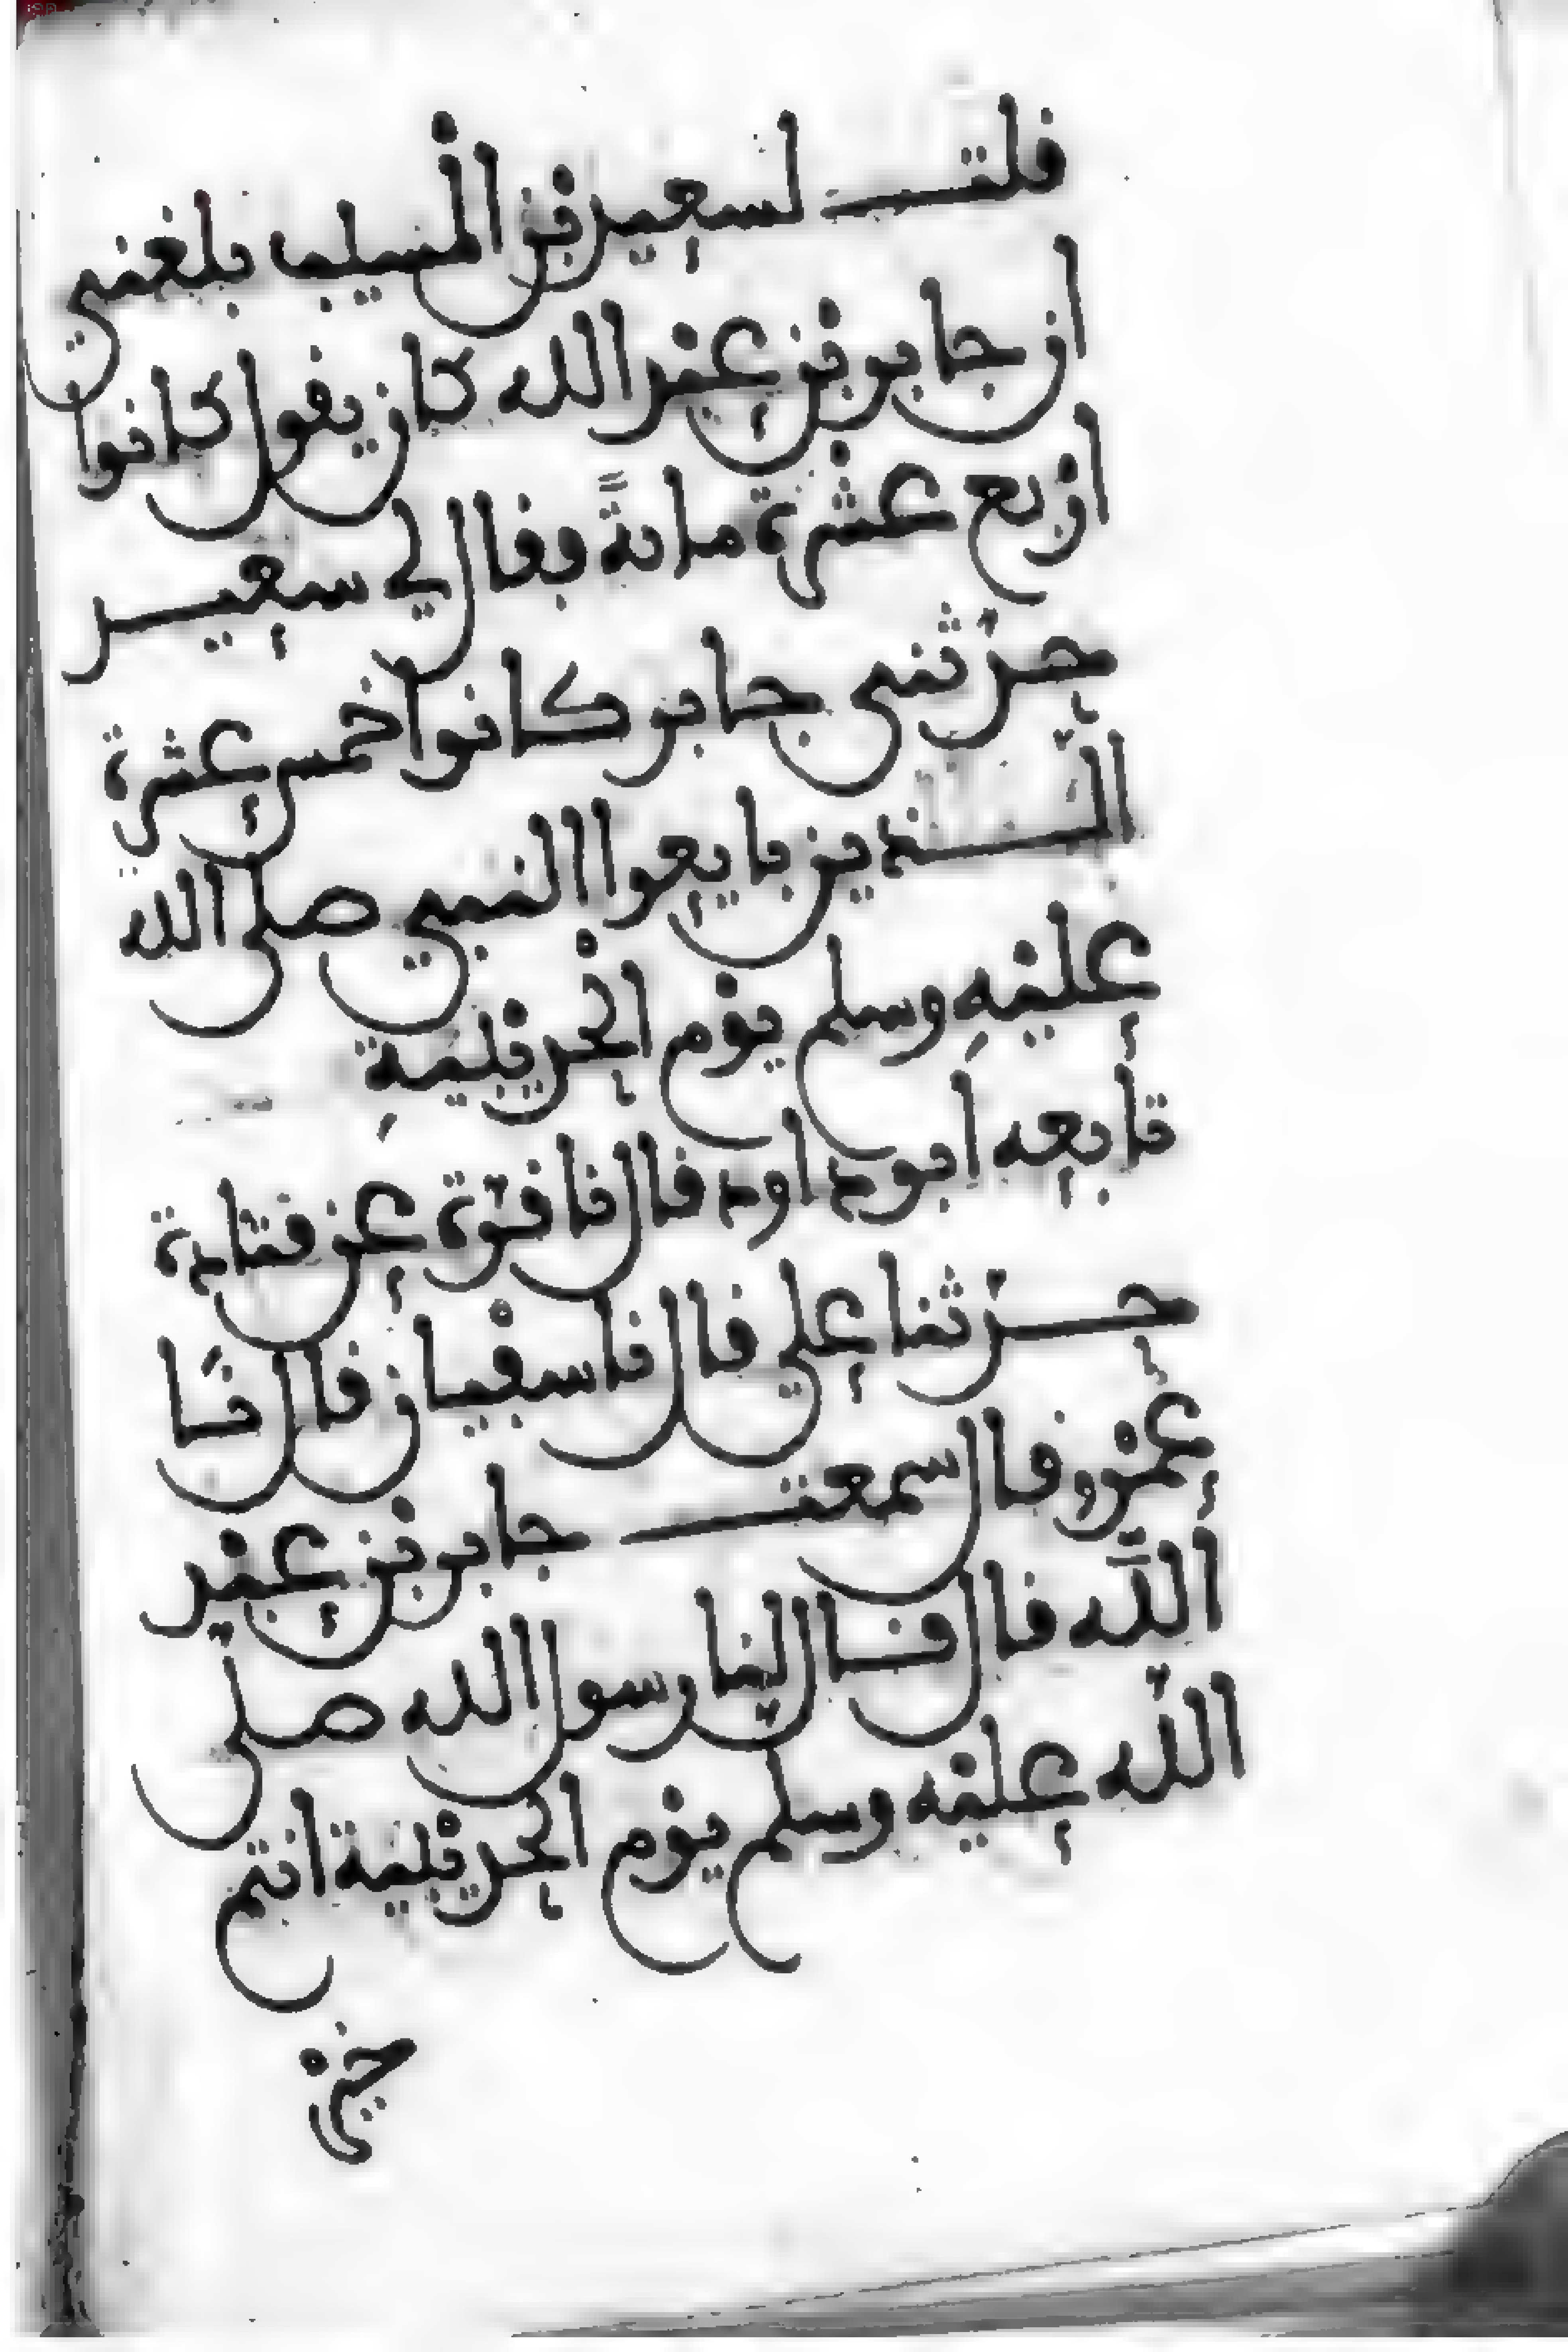 قلت لسعيد بن المسيب بلغني
ان جابر بن عبد الله كان يقول كانوا
اربع عشرة مائةً فقال لي سعيد
حدثني جابر كانوا خمس عشرة
الذين بايعوا النبي صلى الله
عليه وسلم يوم الحديبيةِ
تابعه ابو داود قال نا قرة عن قتادة
حدثنا علي قال نا سفيان قال نا
عمرو قال سمعت جابر بن عبد
الله قال قال لنا رسول الله صلى
الله عليه وسلم يوم الحديبية انتم
خير